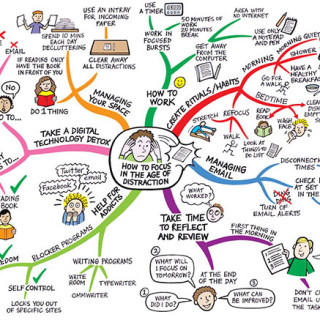 HOW TO FOCUS
IN THE AGE OF
DISTRACTION
MANAGING
YOUR SPACE
SPEND 10 MINS
EACH DAY
DECLUTTERING
USE AN INTRAY
FOR INCOMING
PAPER
CLEAR AWAY
ALL DISTRACTIONS
EMAIL
IF READING ONLY
HAVE THE BOOK
IN FRONT OF YOU
DO 1 THING
NO
HOW TO
WORK
USE
A TIMER
WORK IN
FOCUSED
BURSTS
50 MINUTES OF
WORK
20 MINUTES
BREAK
GET AWAY
FROM THE
COMPUTER
AREA WITH
NO INTERNET
USE ONLY
A NOTEBOOK
AND PEN
CREATE RITUALS/HABITS
MORNING
QUIET
SHOWER
HAVE A
HEALTHY
BREAKFAST
GO FOR A
WALK
BEDTIME
READ
BOOK
WASH
FACE
CLEAR
EMPTY
REFOCUS
STRETCH
WALK
LOOK AT
THINGS TO
DO LIST
MANAGING
EMAIL
DISCONNECTION
TIMES
CHECK
AT SET
IN THE
DING
DONG
TURN OFF
EMAIL ALERTS
TAKE TIME
TO REFLECT
AND REVIEW
WHAT
WORKED?
FIRST THING IN
THE MORNING
WHAT WILL
I FOCUS ON
TOMORROW?
AT THE END
OF THE DAY
WHAT
DID I DO?
WHAT CAN BE
IMPROVED?
DON'T
EMAIL
THE TASK
TAKE A DIGITAL
TECHNOLOGY DETOX
HELP FOR
ADDICTS
Twitter
email
Facebook
BLOCKER PROGRAMS
SELF CONTROL
LOCKS YOU OUT
OF SPECIFIC SITES
WRITING PROGRAMS
WRITE
ROOM
TYPEWRITER
OMMWRITER
BOOK